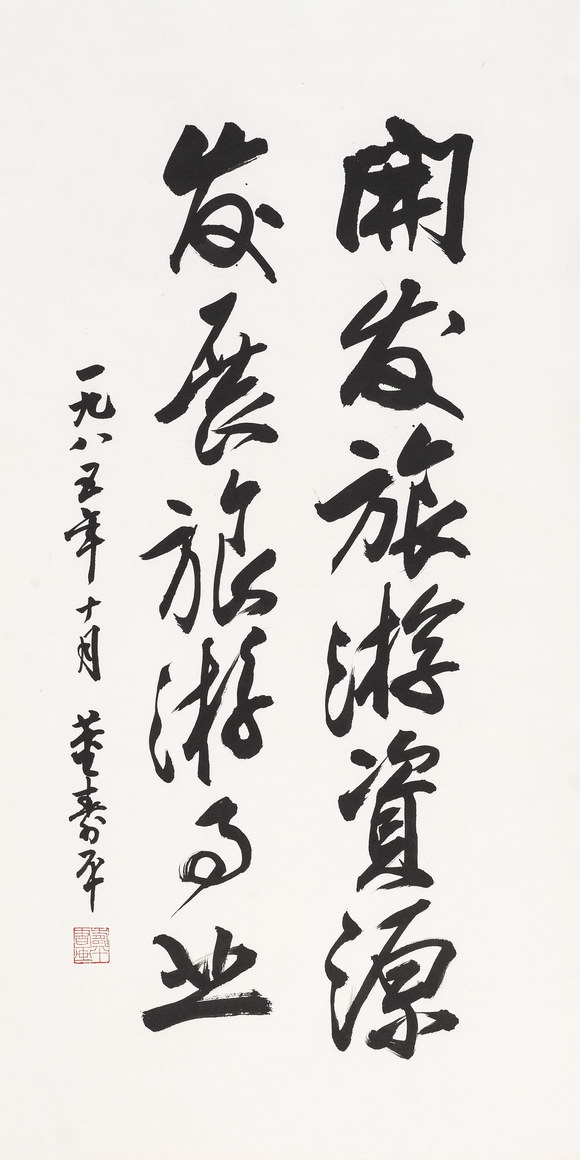 開发旅游資源
发展旅游事业
一九八五年十月 董壽平